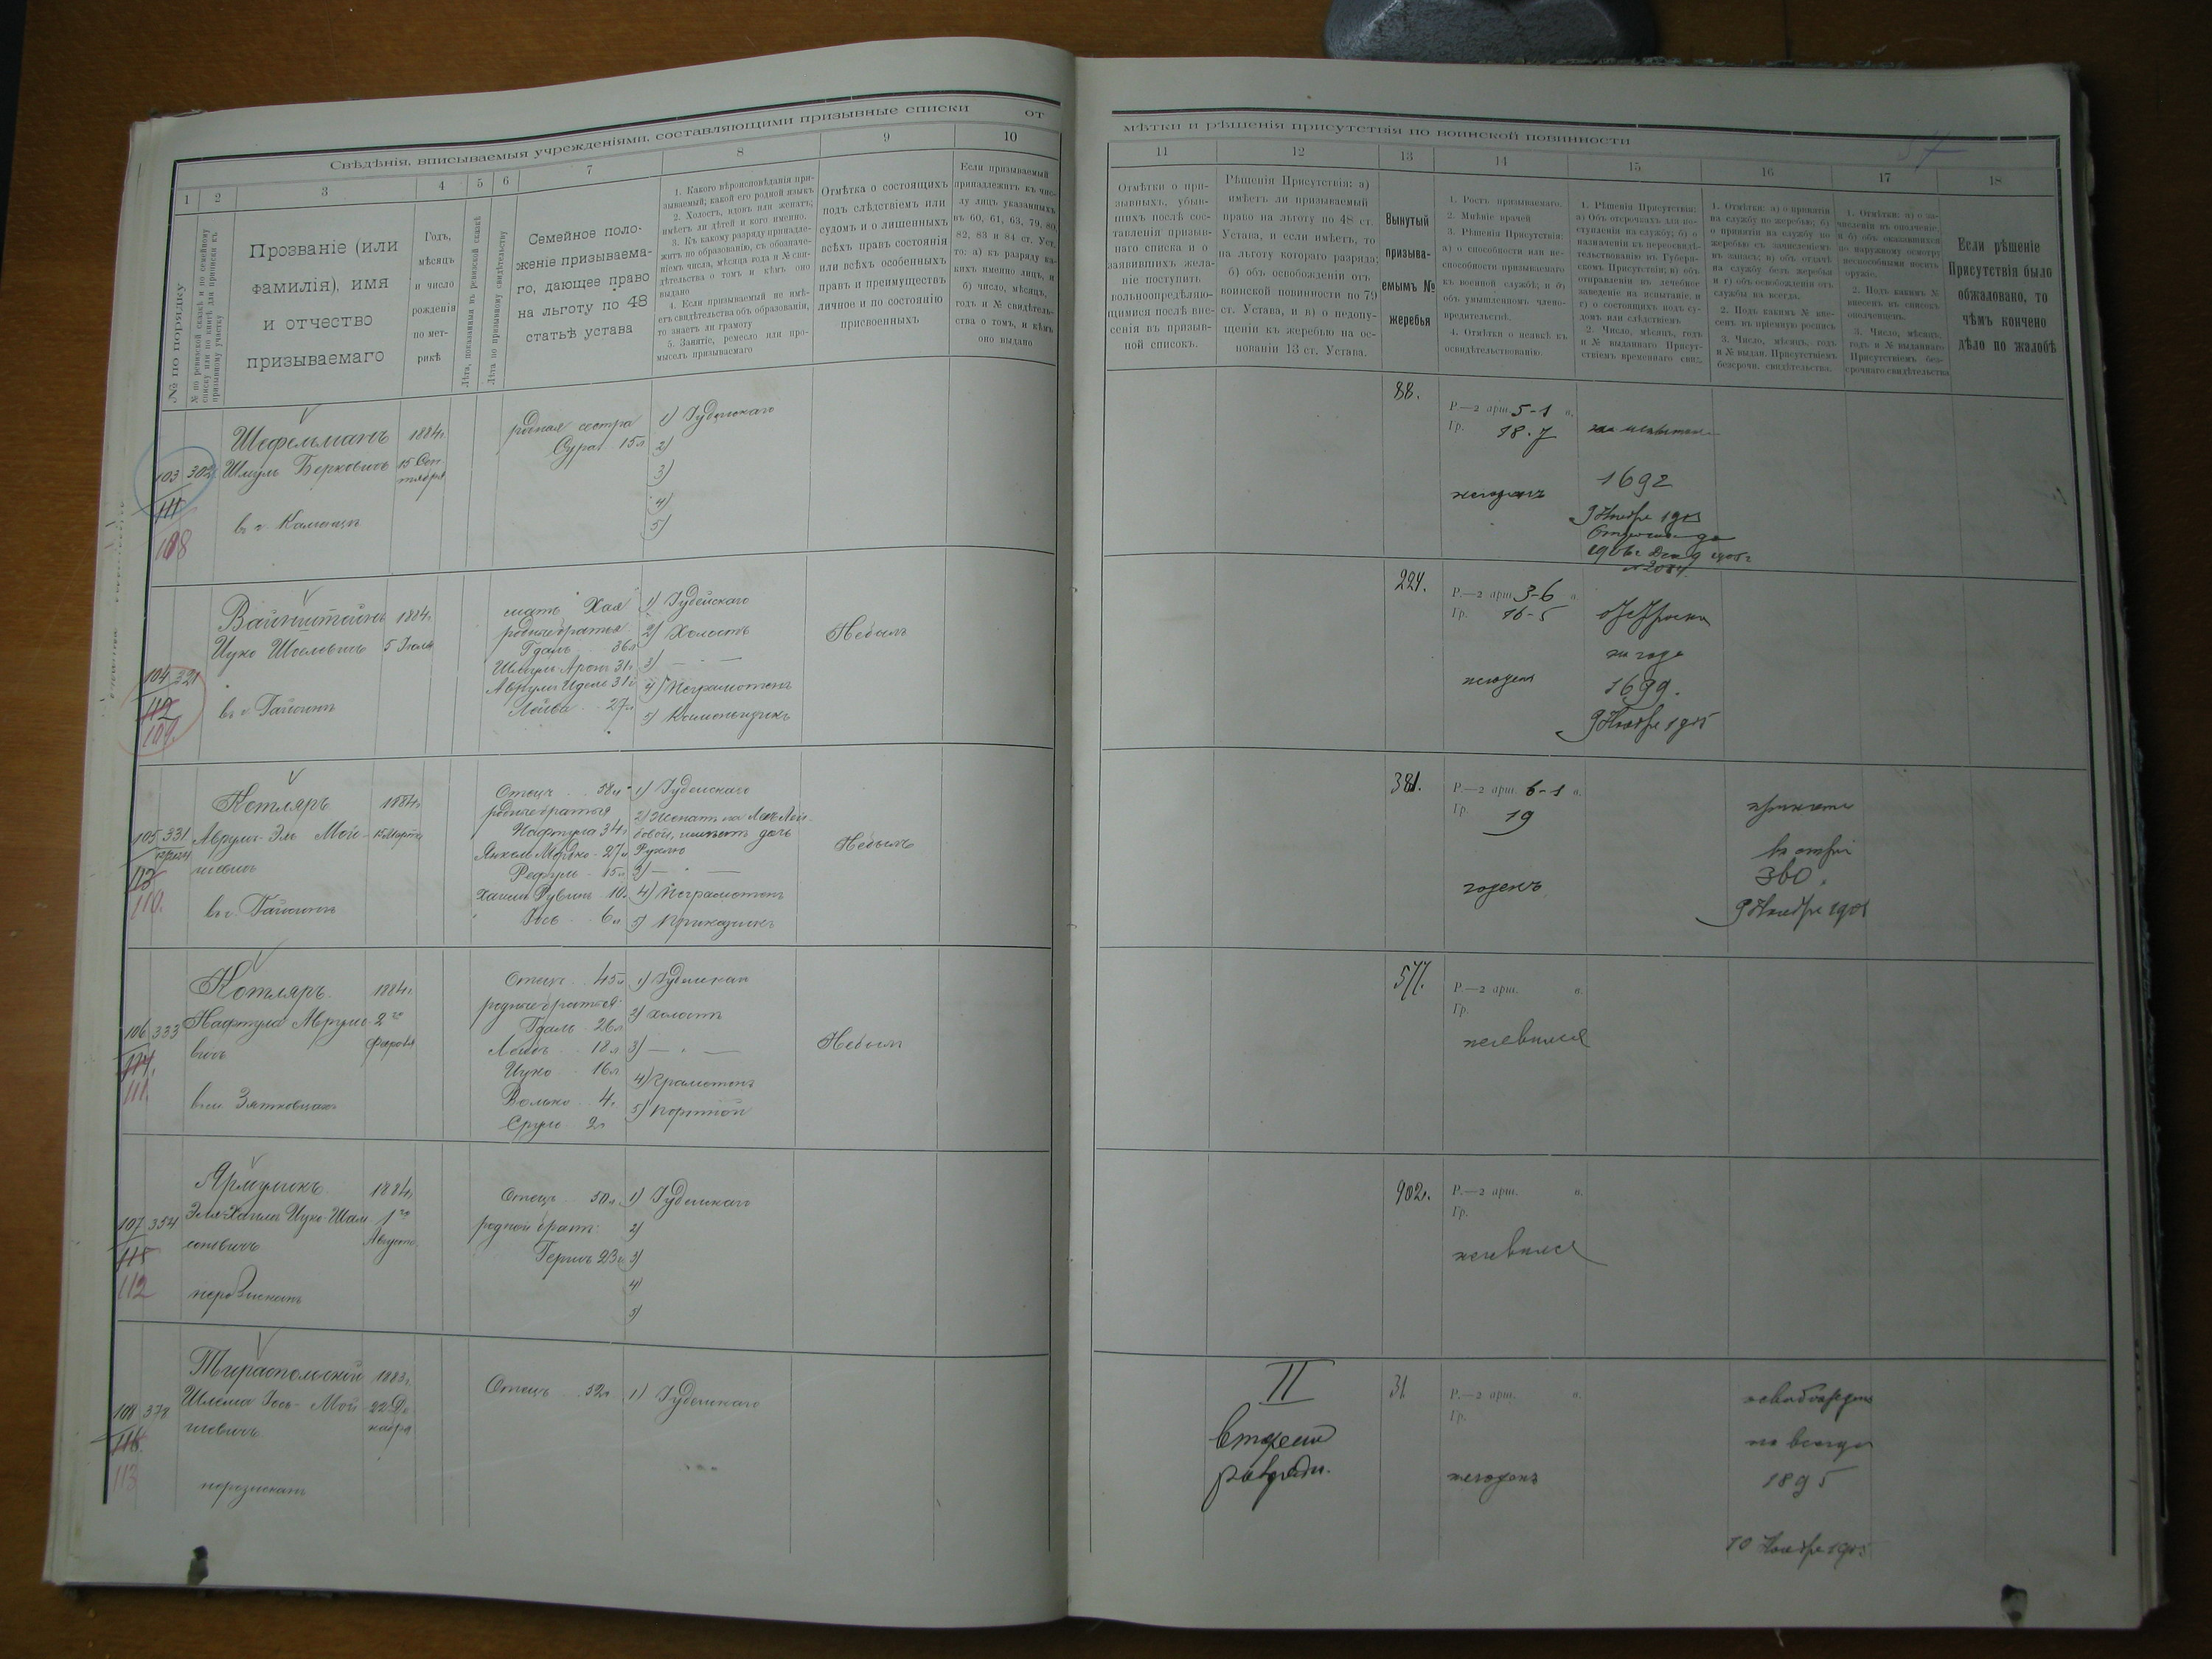 Свѣдѣнія, вписываемыя учрежденіями, составляющими призывные списки
от
1 2 3 4 5 6 7 8 9 10
№ по порядку
Прозваніе (или
фамилія), имя
и отчество
призываемаго
Годъ,
мѣсяцъ
и число
рожденія
по мет-
рикѣ
Лѣта, показанныя въ ревизской сказкѣ
Лѣта по призывному свидѣтельству
Семейное поло-
женіе призываема-
го, дающее право
на льготу по 48
статьѣ устава
1. Какого вѣроисповѣданія при-
зываемый; какой его родной языкъ
2. Холостъ, вдовъ или женатъ;
имѣетъ ли дѣтей и кого именно.
3. Къ какому разряду принадле-
житъ по образованію, съ обозначе-
ніемъ числа, мѣсяца года и № сви-
дѣтельства о томъ и кѣмъ оно
выдано
4. Если призываемый не имѣ-
етъ свидѣтельства объ образованіи,
то знаетъ ли грамоту
5. Занятіе, ремесло или про-
мыселъ призываемаго
Отмѣтка о состоящихъ
подъ слѣдствіемъ или
судомъ и о лишенныхъ
всѣхъ правъ состоянія
или всѣхъ особенныхъ
правъ и преимуществъ
личное и по состоянію
присвоенныхъ
Если призываемый
принадлежитъ къ чис-
лу лицъ указанныхъ
въ 60, 61, 63, 79, 80,
82, 83 и 84 ст. Уст.
то: а) къ разряду ка-
кихъ именно лицъ, и
б) число, мѣсяцъ,
годъ и № свидѣтель-
ства о томъ, и кѣмъ
оно выдано
103 302
111
108
Шефельманъ 1884г.
Шмуль Берковичъ 15 Сен-
тября
родная сестра
Сура 15л
1) Іудейскаго
2)
3)
4)
5)
104 321
112
109.
Вайнштейнъ 1884г.
Ицко Шоеловичъ 5 Іюля
въ г. Гайсинѣ
мать Хая
родные братья
Гдаль 36л
Шмуль-Арон 31л
Лейба 27л
1) Іудейскаго
2) Холостъ
3) — " —
4) Неграмотенъ
Небылъ
105 331
113
110.
Котляръ 1884г.
Аврумъ-Эль Мой- 15 Марта
шовичъ
въ г. Гайсинѣ
Отецъ 58л
родные братья
Нафтула 34г
Янкель Мордко 27л
Рефулъ 15л
Хаимъ Рувинъ 10л
Іось 6л
1) Іудейскаго
Рухлю
3) — " —
4) Неграмотенъ
5) Прикащикъ
Небылъ
106 333
114.
111.
Котляръ. 1884г.
Нафтула Аврумо- 2го
вичъ Февраля
въ м. Зятковцахъ
Отецъ 45л
родные братья:
Гдаль 26л
Лейбъ 18л
Ицко 16л
Волько 4г.
Сруль 2г
1) Іудейскаго
2) холостъ
3) — " —
4) Грамотенъ
5) Портной
Небылъ
107 354
115
112
Ярмулинъ 1884г
Эля-Хаимъ Ицко-Шам- 1го
соновичъ Августа
неразысканъ
Отецъ 50л
родной братъ:
Гершъ 23г
1) Іудейскаго
2)
3)
4)
5)
108 378
116.
113
Тираспольскій 1883г.
Шлема Іось-Мой- 22 Де-
шовичъ кабря
неразысканъ
Отецъ 52г
1) Іудейскаго
мѣтки и рѣшенія присутствія по воинской повинности
11 12 13 14 15 16 17 18
Отмѣтки о при-
зывныхъ, убыв-
шихъ послѣ сос-
тавленія призыв-
наго списка и о
заявившихъ жела-
ніе поступить
вольноопредѣляю-
щимися послѣ вне-
сенія въ призыв-
ной списокъ.
Рѣшенія Присутствія: а)
имѣетъ ли призываемый
право на льготу по 48 ст.
Устава, и если имѣетъ, то
на льготу котораго разряда;
б) объ освобожденіи отъ
воинской повинности по 79
ст. Устава, и в) о недопу-
щеніи къ жеребью на ос-
нованіи 13 ст. Устава.
Вынутый
призыва-
емымъ №
жеребья
1. Ростъ призываемаго.
2. Мнѣніе врачей
3. Рѣшенія Присутствія:
а) о способности или не-
способности призываемаго
къ военной службѣ; и б)
объ умышленномъ члено-
вредительствѣ.
4. Отмѣтки о неявкѣ къ
освидѣтельствованію.
1. Рѣшенія Присутствія:
а) Объ отсрочкахъ для по-
ступленія на службу; б) о
назначеніи къ переосвидѣ-
тельствованію въ Губерн-
скомъ Присутствіи; в) объ
отправленіи въ лечебное
заведеніе на испытаніе, и
г) о состоящихъ подъ су-
домъ или слѣдствіемъ
2. Число, мѣсяцъ, годъ
и № выданнаго Присут-
ствіемъ временнаго свид.
1. Отмѣтки: а) о принятіи
на службу по жеребью; б)
о принятіи на службу по
жеребью съ зачисленіемъ
въ запасъ; в) объ отдачѣ
на службу безъ жеребья
и г) объ освобожденіи отъ
службы на всегда.
2. Подъ какимъ № вне-
сенъ въ пріемную роспись
3. Число, мѣсяцъ, годъ
и № выдан. Присутствіемъ
безсрочн. свидѣтельства.
1. Отмѣтки: а) о за-
численіи въ ополченіе,
и б) объ оказавшихся
по наружному осмотру
неспособными носить
оружіе.
2. Подъ какимъ №
внесенъ въ списокъ
ополченцевъ.
3. Число, мѣсяцъ,
годъ и № выданнаго
Присутствіемъ без-
срочнаго свидѣтельства
Если рѣшеніе
Присутствія было
обжаловано, то
чѣмъ кончено
дѣло по жалобѣ
88.
Р.—2 арш. 5-1 в.
Гр. 18.7
негоденъ
1692
9 Ноября 1905
224.
Р.—2 арш 3-6 в.
Гр. 16-5
негоденъ
отсрочка
на годъ
1699.
9 Ноября 1905
381.
Р.—2 арш. 6-1 в.
Гр. 19
годенъ
принятъ
360.
9 Ноября 1905
577.
Р.—2 арш. в.
Гр.
неявился
902.
Р.—2 арш. в.
Гр.
неявился
II
втораго
разряда.
31
Р.—2 арш. в.
Гр.
негоденъ
освобожденъ
на всегда
1895
10 Ноября 1905